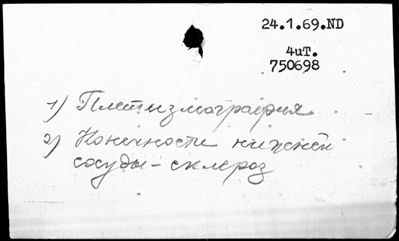 24.1.69.ND
4иТ.
750698
1) Плетизмография.
2) Конечности нижней
сосуды – склероз